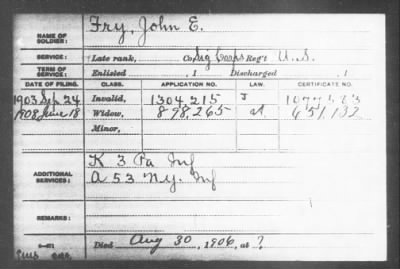 NAME OF SOLDIER: Fry, John E.
SERVICE: Late rank, Co. Sig Corps Reg't U.S.
TERM OF SERVICE: Enlisted , 1 Discharged , 1
DATE OF FILING. CLASS. APPLICATION NO. LAW. CERTIFICATE NO.
1903 Sep 24 Invalid, 1304215 J
1908 June 18 Widow, 898,265
Minor,
K 3 Pa Inf
ADDITIONAL SERVICES: A 53 N.Y. Inf
REMARKS:
Died Aug 30, 1906, at ?